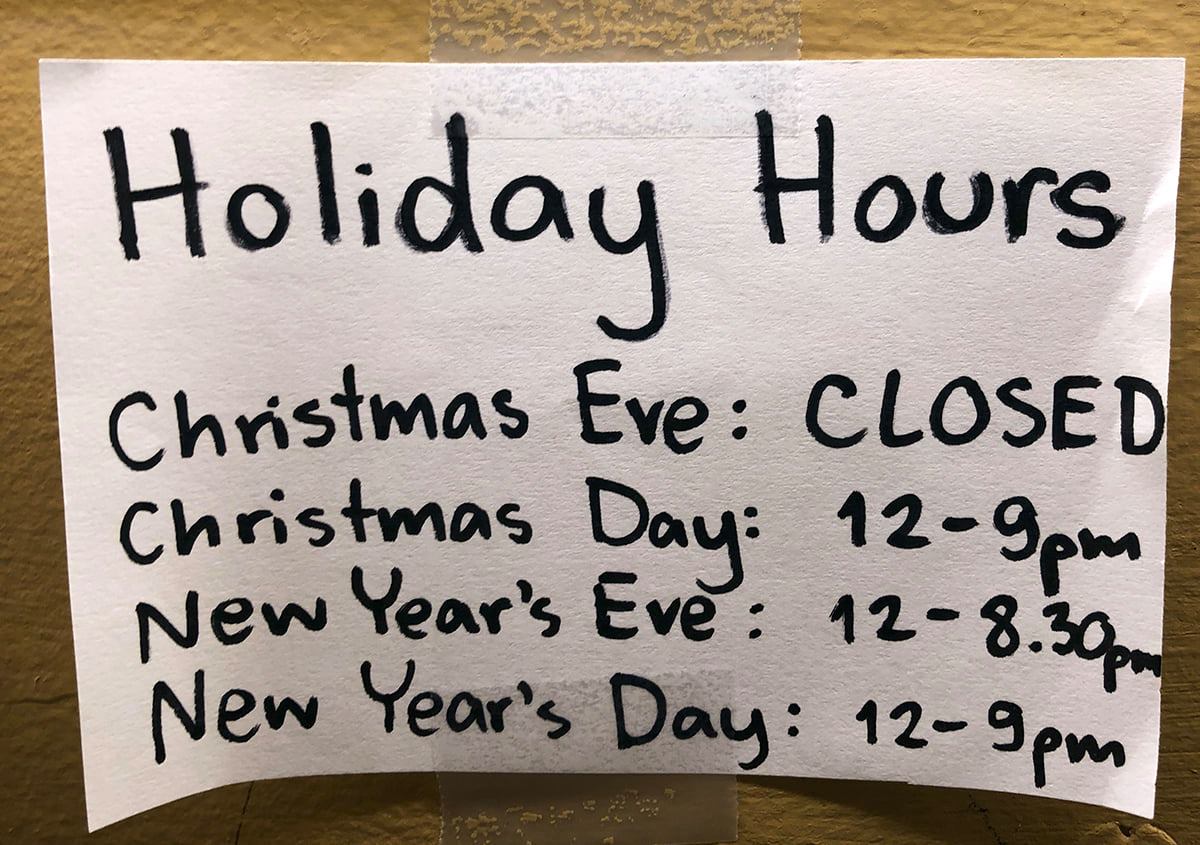 Holiday Hours
Christmas Eve: CLOSED
Christmas Day: 12-9pm
New Year's Eve: 12-8.30pm
New Year's Day: 12-9pm